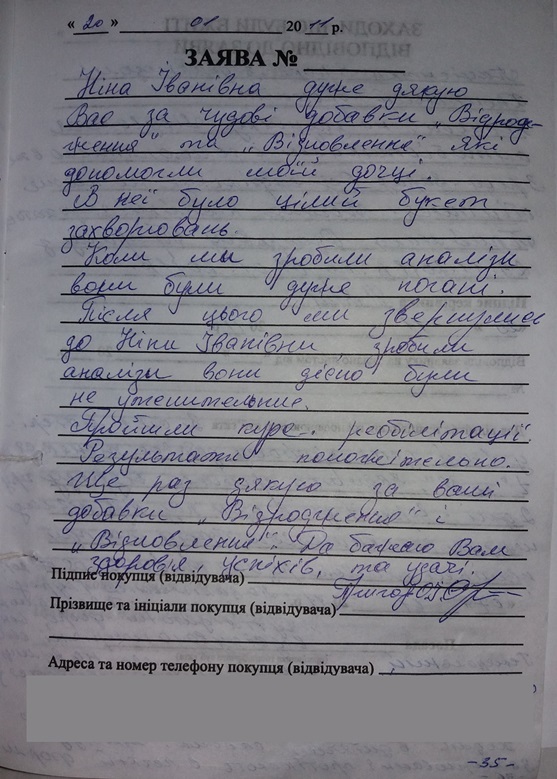 « 20 » 01 2011 р.
ЗАЯВА №
Ніна Іванівна дуже дякую
Вас за чудові добавки „Відрод-
ження" та „Відновлення" які
допомогли моїй дочці.
В неї було цілий букет
захворювань.
Коли ми зробили аналізи
вони були дуже погані.
Після цього ми звернулися
до Ніни Іванівни зробили
аналізи вони дісно були
не утешительние.
Пройшли курс реабілітації.
Результати положітельно.
Ще раз дякую за ваші
добавки „Відродження" і
„Відновлення". Да бажаю Вам
здоров'я, успіхів, та удачі.
Підпис покупця (відвідувача)
Прізвище та ініціали покупця (відвідувача)
Адреса та номер телефону покупця (відвідувача)
-35-